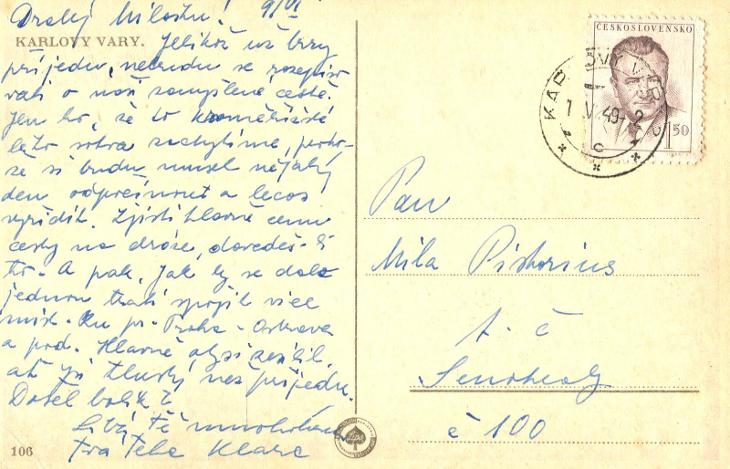 Drahý Miloušku! 9/VI
KARLOVY VARY. Jelikož už brzy
přijedu, nebudu se rozepiso
vati o naší zamýšlené cestě.
Jen to, že to kroměřížské
léto sotva zachytíme, proto-
že si budu muset nějaký
den odpočinout a lecos
vyřídit. Zjisti hlavně cenu
cesty na dráze, dovedeš-li
to. A pak, jak by se dala
jednou tratí spojit více
míst. Ku př. Praha - Ostrava
a pod. Hlavně aby si zesílil,
ať jsi tlustý než přijedu.
Došel balík?
Líbá Tě mnohokrát
Tvá teta Klára
106
ČESKOSLOVENSKO
1 50
KARLOVY VARY
1. V. 49 - 2
c
Pan
Míla Pistorius
t. č
č 100